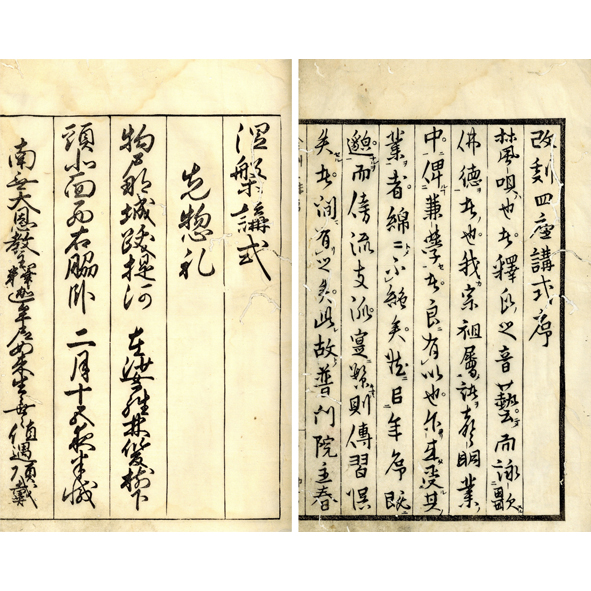 改刻四座講式序
梵唄也者釋氏之音藝而詠歌
佛德者也我宗祖屬諸声明業
中俾兼學者良有以也尓来受其
業者綿々不絶矣然巨年序既
邈而傍流支派寔繁則傳習誤
失者間有之矣此故普門院主春
涅槃講式
先惣礼
拘尸那城跋提河 在娑羅林双樹下
頭北面西右脇臥 二月十五夜半滅
南無大恩教主釋迦牟尼如来生々世々値遇頂戴